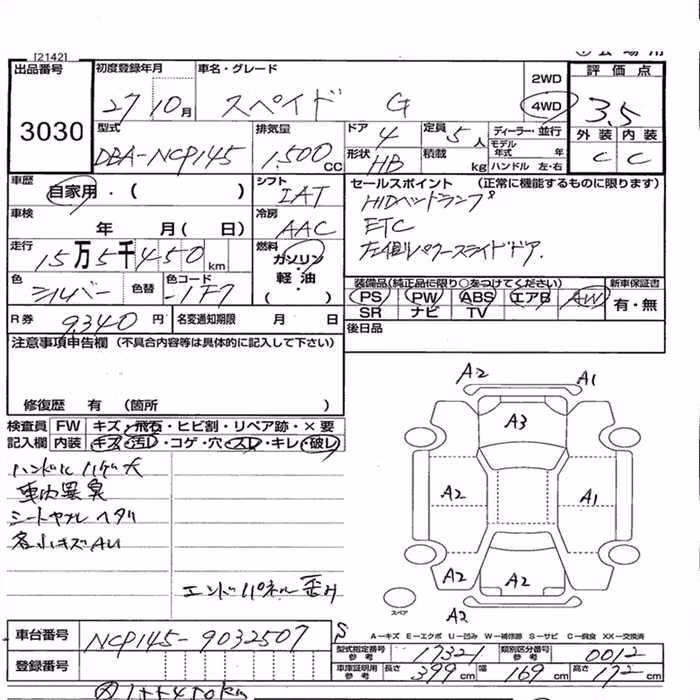 [2142]
出品番号 初度登録年月 車名・グレード 2WD 評価点
3030 27 10月 スペイド G 4WD 3.5
型式 排気量 ドア 4 定員 5人 ディーラー・並行 外装 内装
DBA-NCP145 1,500CC 形状 HB 積載 kg モデル年式 年 ハンドル 左・右 C C
車歴 自家用・( ) シフト IAT セールスポイント (正常に機能するものに限ります)
車検 年 月( 日) 冷房 AAC HIDヘッドランプ
ETC
走行 15万5千450km 燃料 ガソリン 軽・油 ( ) 左側パワースライドドア.
色 シルバー 色替 色コード -1F7 装備品(純正品に限り○をつけてください) 新車保証書
PS PW ABS エアB AW 有・無
R券 9,340円 名変通知期限 月 日 SR ナビ TV
後日品
注意事項申告欄 (不具合内容等は具体的に記入して下さい)
修復歴 有 (箇所 )
検査員 FW キズ・飛石・ヒビ割・リペア跡・×要
記入欄 内装 キズ・汚レ・コゲ・穴・スレ・キレ・破レ
ハンドルハゲ大
車内異臭
シートヤブレ ヘタリ
各小キズAU
エンドパネル歪み
A2 A1
A3
A2 A1
A2 A2
A2
スペア
A-キズ E-エクボ U-凹み W-補修跡 S-サビ C-腐食 XX-交換済
車台番号 NCP145-9032507 S
型式指定番号参考 17321 類別区分番号参考 0012
登録番号 車庫証明用参考 長さ 399cm 幅 169cm 高さ 172cm